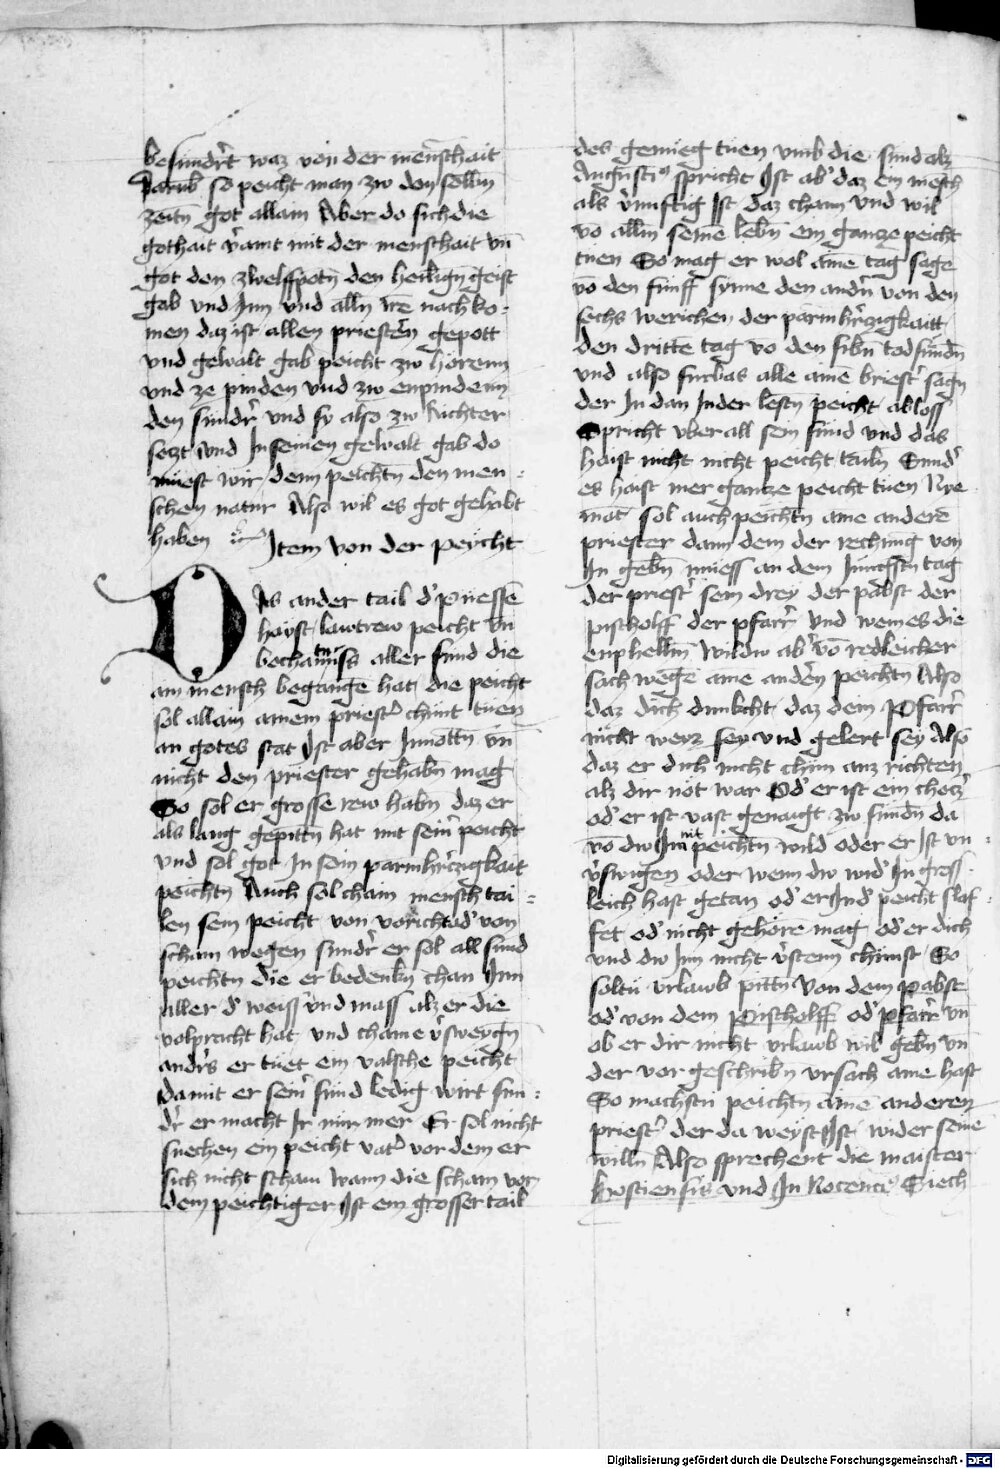 besundrt waz von der menschait
Darub so peicht man zw den selbn
zeitn got allain Aber do sich die
gothait v̓aint mit der menschait vn̄
got den zwelffpotn̄ den heilign̄ geist
gab vnd Jnn vnd alln̄ irē nachko⸗
men daz ist allen priestern̄ gepott
vnd gewalt gab peicht zw hörenn
vnd ze pinden vnd zw enpindenn
den sündr̓ vnd sy also zw Richter
setzt vnd Jn seinen gewalt gab do
müest wir denn peichtn̄ den men⸗
schen natur Also wil es got gehabt
haben Item von der peycht
Das ander tail d̓ puessē
hayst lawtrew peicht vn̄
bechantnuss aller sund die
ain mensch begangē hat die peicht
sol allain ainem priestr̓ chünt tuen
an gotes stat Ist aber Jnnöttn̄ vn̄
nicht den priester gehabn̄ mag
So sol er grosse rew habn̄ daz er
als lang gepittn̄ hat mit sein̓ peicht
vnd sol got Jn sein parmhr̓czigkait
peichtn̄ Auch sol chain mensch tai⸗
len sein peicht von voricht od̓ von
scham wegen sundr̓ er sol all sund
peichtn̄ die er bedenkn̄ chan Jnn
aller d̓ weiss vnd mass alz er die
volpracht hat vnd chaine v̓sweygn̄
andr̓s er tüet ein valsche peicht
damit er sein̓ sünd ledig wirt sun⸗
dr̓ er macht Jr nür mer Er sol nicht
suechen ein peicht vatr̓ vor dem er
sich nicht scham wann die scham vor
dem peichtiger Ist ein grosser tail
des genüeg tuen vmb die sünd alz
Augusti⁹ spricht Ist ab̓ daz ein mēsch
als v̓nuftig Ist daz chann vnd wil
vō alln̄ seinē lebn̄ ein gancze peicht
tuen So mag er wol ainē tag sagē
vō den fünff synne den andn̄ von den
sechs werichen der parmhr̓czigkaitt
den drittē tag vō den sibn̄ todsündn̄
vnd also fürbas alle aine briestr̓ sagn̄
der Jn dan Jnder lestn̄ peicht abloss
Spricht vber all sein sünd vnd das
haist nicht nicht peicht tailn̄ Sund̓
es haist mer gancze peicht tuen Nye
mat sol auch peichtn̄ aine anderē
priester dann dem der rechnüg von
Jn gebn̄ müess an dem Jungstn̄ tag
der priestr̓ sein drey der pabst der
pischolff der pfarr̓ vnd wemes die
enphelln̄ wildw ab̓ vō redleicher
sach wegē aine andern̄ peichtn̄ Also
daz dich dunkcht daz dem Pfarr̓
nicht weyz sey vnd gelert sey Also
daz er dich nicht chün anz richten
alz dir nöt war Od̓ er ist ein checz̓
od̓ er ist vast genaigt zw sündn̄ da
vō dw Jm nit peichtn̄ wild oder er Ist vn⸗
v̓swigen oder wenn dw wid̓ Jn gress⸗
leich hast getan od̓ er Jnd̓ peicht slaf⸗
fet od̓ nicht gehörē mag od̓ er dich
vnd dw Jnn nicht v̓stenn chünst So
soltu vrlawb pittn̄ von dem pabst
od̓ von dem Pischolff od̓ pfarr̓ vn̄
ob er dir nicht vrlawb wil gebn̄ vn̄
der vor geschribn̄ vrsach aine hast
So machstu peichtn̄ ainē anderen
priestr̓ der da weyst Ist wider seinē
willn̄ Also sprechent die maister
Hostiensis vnd Jn Nocenci⁹ Siech
Digitalisierung gefördert durch die Deutsche Forschungsgemeinschaft - DFG